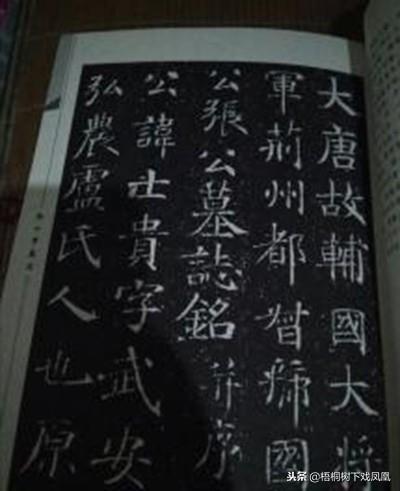 大唐故輔國大將
軍荊州都督虢國
公張公墓誌銘并序
公諱士貴字武安
弘農盧氏人也原
头条 @梧桐树下戏凤凰